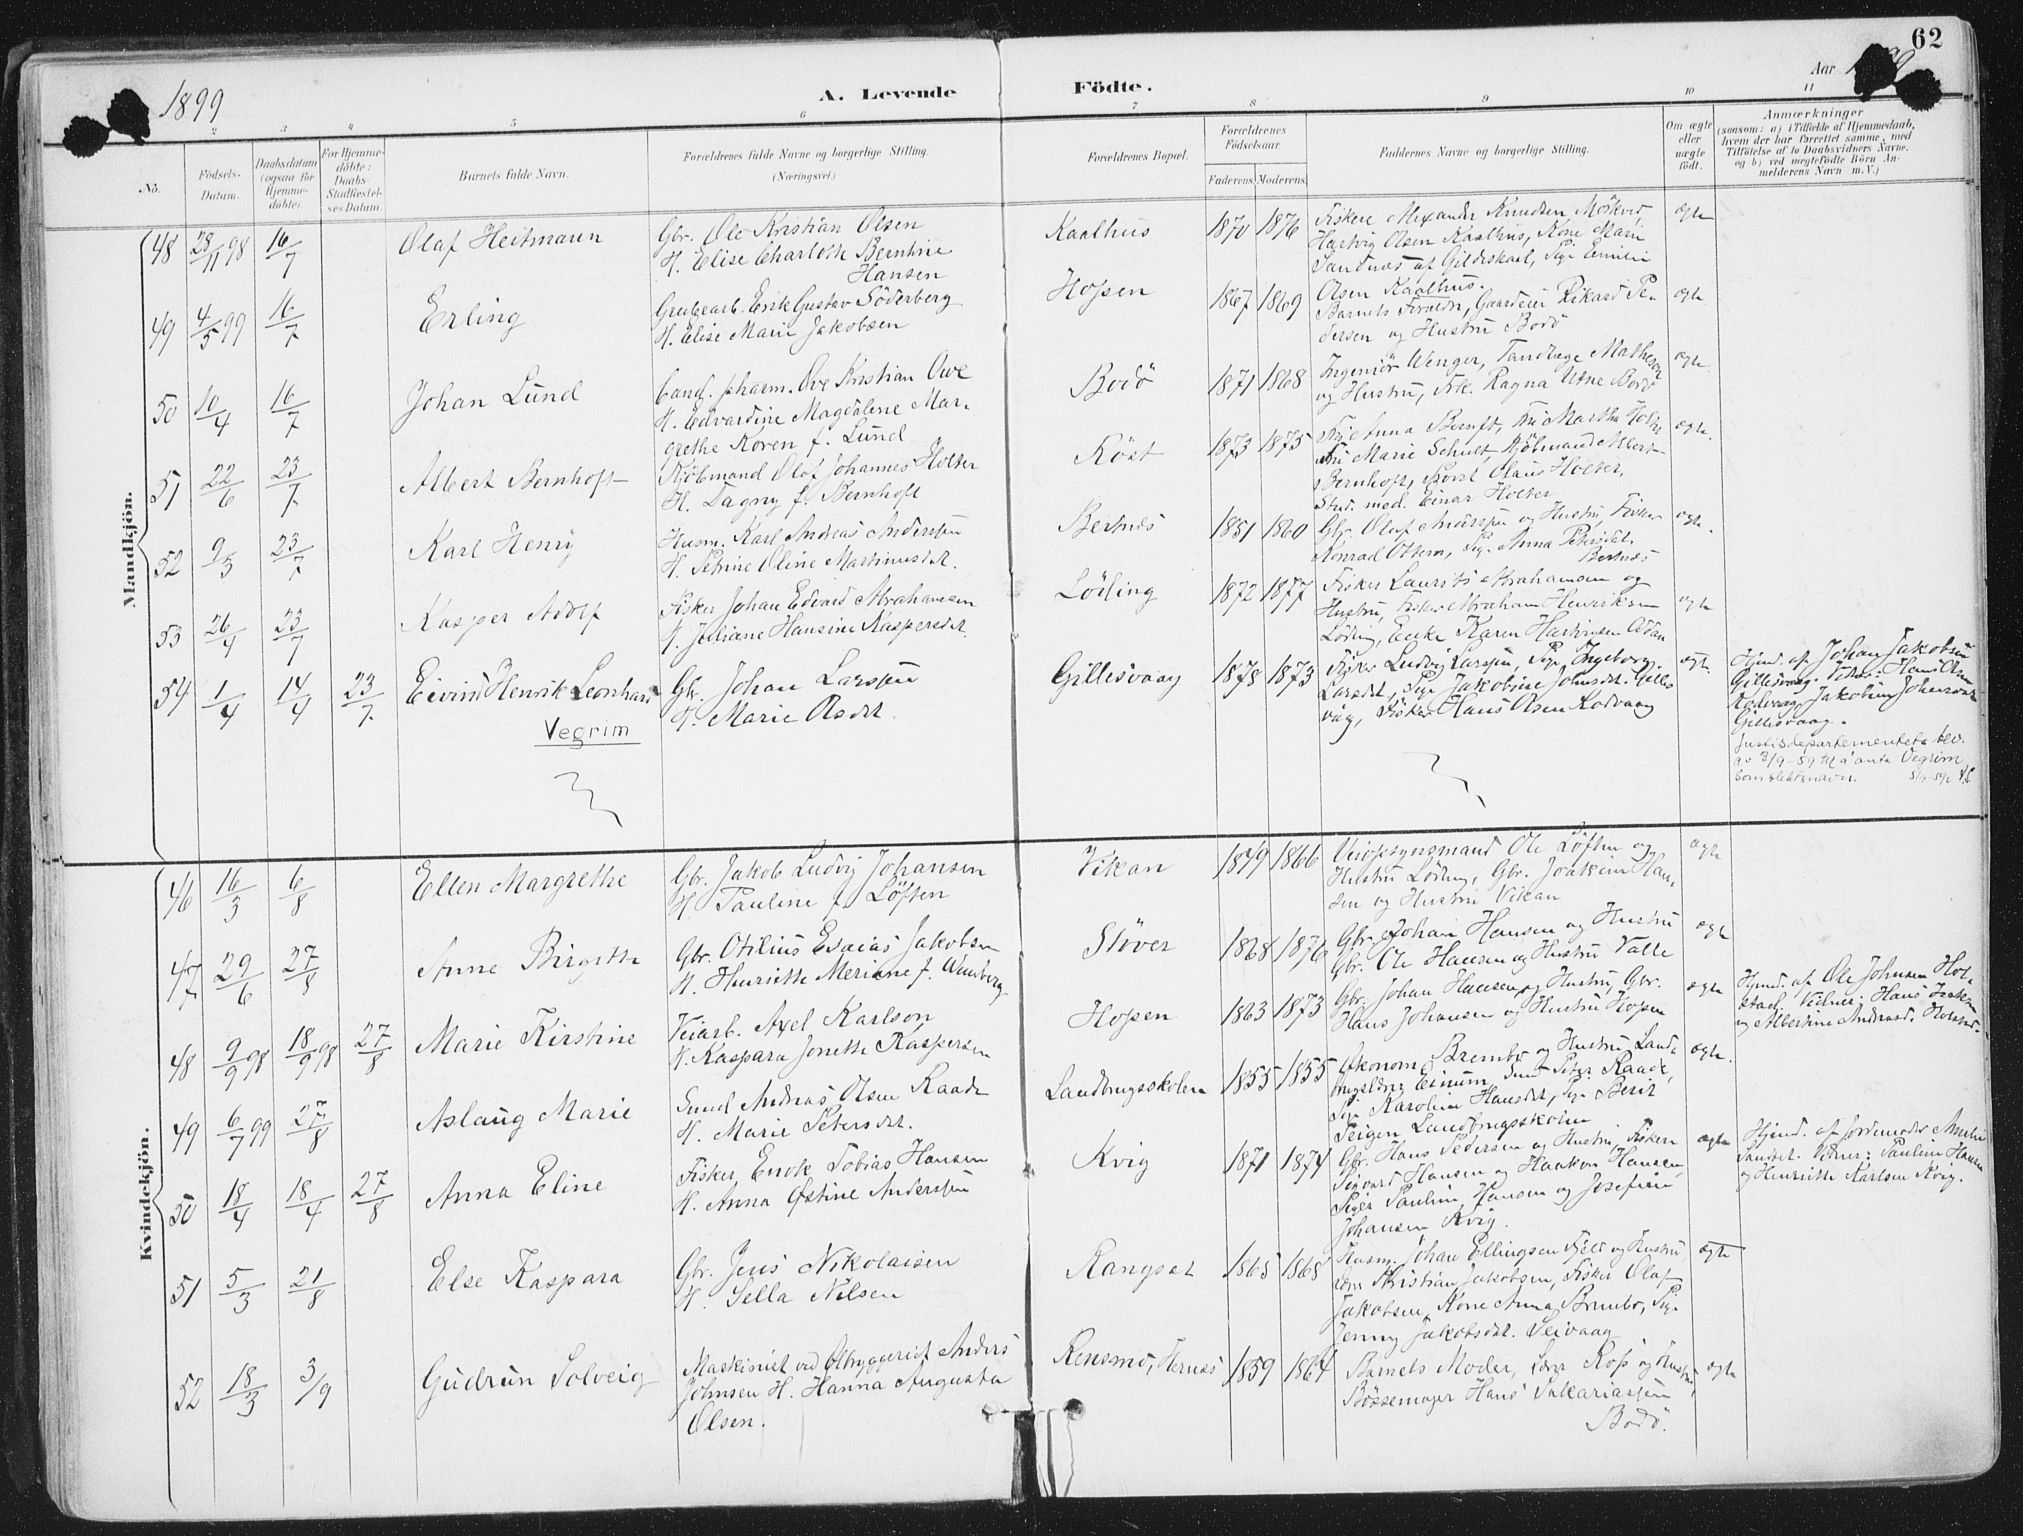 62
1899
A. Levende
Födte.
Aar
2 3 4 5 6 7 8 9 10 11
No.
Födsels-Datum.
Daabsdatum (ogsaa for Hjemmedöbte).
For Hjemmedöbte: Daabs-Stadfæstelses Datum.
Barnets fulde Navn.
Forældrenes fulde Navne og borgerlige Stilling.
(Næringsvei.)
Forældrenes Bopæl.
Forældrenes Födselsaar.
Faderens Moderens
Faddernes Navne og borgerlige Stilling.
Om ægte eller uægte födt.
Anmærkninger
(saasom: a) i Tilfælde af Hjemmedaab,
hvem der har forrettet samme, med
Tilföielse af to Daabsvidners Navne.
og b) ved uegtefödte Börn Anmelderens Navn m. V.)
Mandkjön.
48 28/11 98 16/7 Olaf Heitmann
Gbr. Ole Kristian Olsen
H. Elise Charlotte Berntine
Hansen
Kaalhus 1870 1876
Fiskere Alexander Knudsen Mökvid,
Hartvig Olsen Kaalhus, Kone Marie
Sandnæs af Gildeskaal, Pige Emilie
Olsen Kaalhus.
ægte
49 4/5 99 16/7 Erling
Grubearb. Erik Gustav Söderberg
H. Elise Marie Jakobsen
Hopen 1867 1869
Barnets Forældre, Gaardeier Rikard Pe-
dersen og Hustru Bodö
ægte
50 10/4 16/7 Johan Lund
Cand. pharm. Ove Kristian Owe
H. Edvardine Magdalene Mar-
grethe Koren f. Lund
Bodö 1871 1868
Ingeniör Wenger, Tandlæge Matheson
og Hustru, Frk. Ragna Utne Bodö
ægte.
51 22/6 23/7 Albert Bernhoft
Kjöbmand Olaf Johannes Holter
H. Dagny f. Bernhoft
Röst 1873 1875
Fru Anna Bernhoft, Fru Martha Holter
Fru Marie Schult, Kjöbmand Albert
Bernhoft, Olaus Holter,
Stud. med. Einar Holter
ægte.
52 9/3 23/7 Karl Henry
Husm. Karl Andreas Anderssen
H. Petrine Oline Martinusdt.
Bertnæs 1851 1860
Gbr. Olaf Anderssen og Hustru, Fisker
Konrad Ottem, Pige Anna Petersdt.
Bertnæs
ægte.
53 26/4 23/7 Kasper Adolf
Fisker Johan Edvard Abrahamsen
H. Juliane Hansine Kaspersdt.
Löding 1872 1877
Fisker Laurits Abrahamsen og
Hustru, Fisker Abraham Henriksen
Löding, Enke Karen
ægte
54 1/4 14/4 23/7 Eivind Henrik Leonhard
Vegrim
Gbr. Johan Larssen
H. Marie Olsdt.
Gillesvaag 1878 1873
Fisker Ludvig Larssen, Pige Ingeborg
Larsdt, Pige Jakobine Johnsdt. Gilles
vaag, Fisker Hans Olsen Kodvaag
ægte.
Hjmd. af Johan Jakobsen
Gillesvaag. Vidner: Hans Olsen
Kodvaag, Jakobine Johnsdt.
Gillesvaag.
Justisdepartementets bev.
av 3/9-59 til å anta Vegrim
som slektsnavn.
Kvindekjön.
46 16/3 6/8 Ellen Margrethe
Gbr. Jakob Ludvig Johansen
H. Pauline f. Löften
Vikan 1849 1866
Veiopsynsmand Ole Löften og
Hustru Löding, Gbr. Joakim Han-
sen og Hustru Vikan
ægte
47 29/6 27/8 Anne Birgitte
Gbr. Otilius Esaias Jakobsen
H. Henriette Meriane f. Wensberg
Stöver 1868 1870
Gbr. Johan Hansen og Hustru
Gbr. Ole Hansen og Hustru Valle
ægte
48 9/9 98 18/9 98 27/8 Marie Kirstine
Veiarb. Axel Karlson
H. Kaspara Jonette Kaspersen
Hopen 1863 1873
Gbr. Johan Hansen og Hustru, Gbr.
Hans Johansen og Hustru Hopen
ægte
Hjmd. af Ole Johnsen Hol-
stad, Vidner: Hans
og Albertine Andreasd. Holstad.
49 6/7 99 27/8 Aslaug Marie
Smed Andreas Olsen Raade
H. Marie Petersdt.
Landbrugsskolen 1855 1855
Økonom Brembo og Hustru, Land-
brugslærer Einum, Smed Peter Raade,
Pige Karoline Hansdt, Pige Berit
Teigen Landbrugsskolen
ægte.
50 18/4 18/4 27/8 Anna Eline
Fisker Enok Tobias Hansen
H. Anna Østine Anderssen
Kvig 1871 1874
Gbr. Hans Pedersen og Hustru, Fiskere
Sigvard Hansen og Haakon Hansen,
Piger Pauline Hansen og Josefine
Johansen Kvig.
ægte
Hjmd. af Jordemoder Amalie
Vidner: Pauline Hansen
og Henriette Karlsen Kvig.
51 5/3 21/8 Else Kaspara
Gbr. Jens Nikolaisen
H. Sella Nilsen
Rangset 1865 1868
Husm. Johan Ellingsen Fjell og Hustru,
Lærer Kristian Jakobsen, Fisker Olaf
Jakobsen, Kone Anna Brembo, Pige
Jenny Jakobsdt. Seivaag
ægte
52 18/3 3/9 Gudrun Solveig
Maskinist ved Ølbryggeriet Anders
Johnsen H. Hanna Augusta
Olsen.
Rensmo, Hernæs 1859 1864
Barnets Moder, Lærer Rosp og Hustru,
Bössemager Hans Sakariassen
Bodö.
ægte